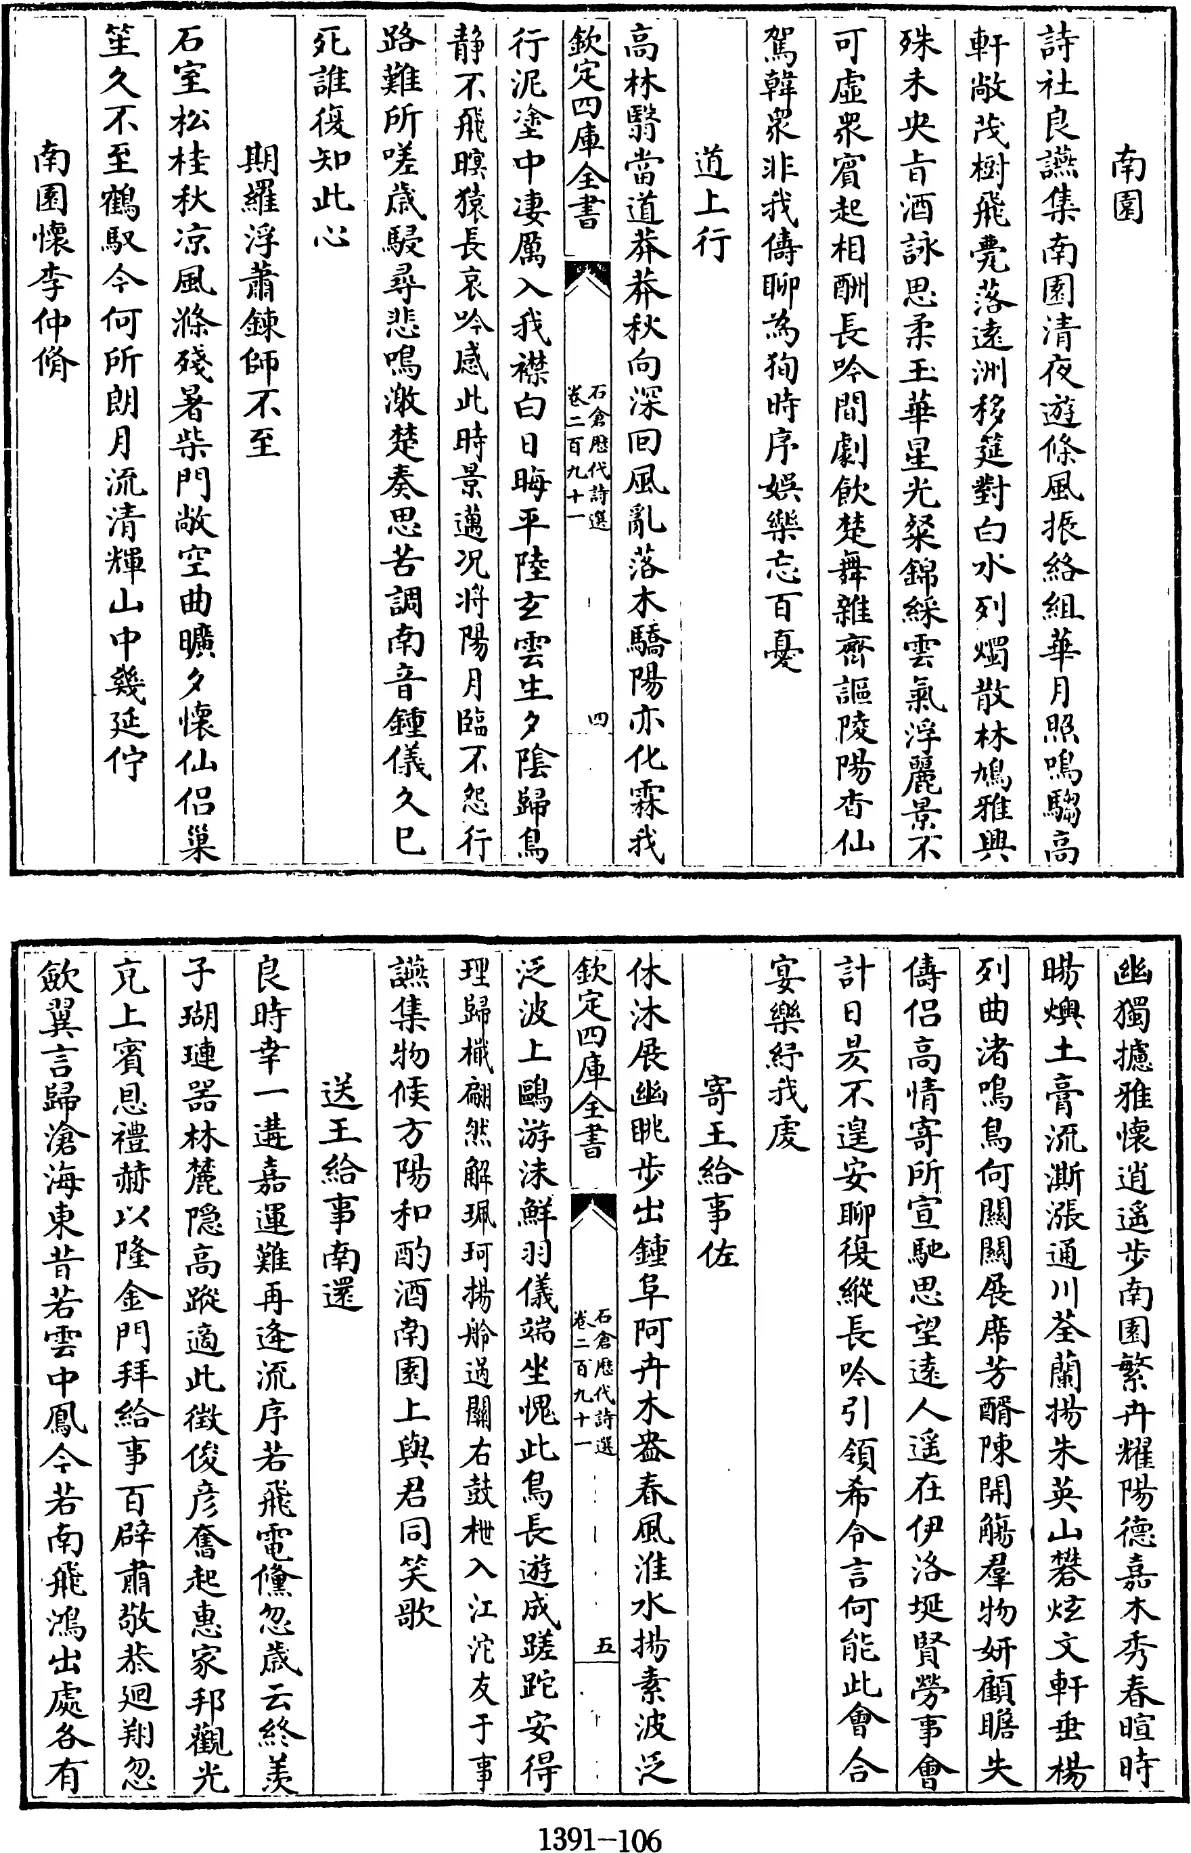 南園
詩社良讌集南園清夜遊條風振絡組華月照鳴騶高
軒敞茂樹飛甍落遠洲移筵對白水列燭散林鳩雅興
殊未央旨酒詠思柔玉華星光粲錦綵雲氣浮麗景不
可虛衆賓起相酬長吟間劇飲楚舞雜齊謳陵陽杳仙
駕韓衆非我儔聊為狥時序娛樂忘百憂
道上行
高林翳當道莽莽秋向深回風亂落木驕陽亦化霖我
欽定四庫全書
石倉歷代詩選
卷二百九十一
四
行泥塗中凄厲入我襟白日晦平陸玄雲生夕陰歸鳥
静不飛暝猿長哀吟感此時景邁况將陽月臨不怨行
路難所嗟歲駸尋悲鳴激楚奏思苦調南音鍾儀久已
死誰復知此心
期羅浮蕭鍊師不至
石室松桂秋凉風滌殘暑柴門敞空曲曠夕懷仙侣巢
笙久不至鶴馭今何所朗月流清輝山中幾延佇
南園懷李仲脩
幽獨攄雅懷逍遥步南園繁卉耀陽德嘉木秀春暄時
暘燠土膏流澌漲通川荃蘭揚朱英山礬炫文軒垂楊
列曲渚鳴鳥何關關展席芳醑陳開觴羣物妍顧瞻失
儔侣高情寄所宣馳思望遠人遥在伊洛埏賢勞事會
計日昃不遑安聊復縱長吟引領希令言何能此會合
宴樂紓我虔
寄王給事佐
休沐展幽眺步出鍾阜阿卉木盎春風淮水揚素波泛
欽定四庫全書
石倉歷代詩選
卷二百九十一
五
泛波上鷗游沬鮮羽儀端坐愧此鳥長遊成蹉跎安得
理歸檝翩然解珮珂揚舲過關右鼓枻入江沱友于事
讌集物候方陽和酌酒南園上與君同笑歌
送王給事南還
良時幸一遘嘉運難再逢流序若飛電儵忽歲云終羡
子瑚璉器林麓隠高蹤適此徴俊彦奮起惠家邦觀光
充上賓恩禮赫以隆金門拜給事百辟肅敬恭廻翔忽
歛翼言歸滄海東昔若雲中鳳今若南飛鴻出處各有
1391-106